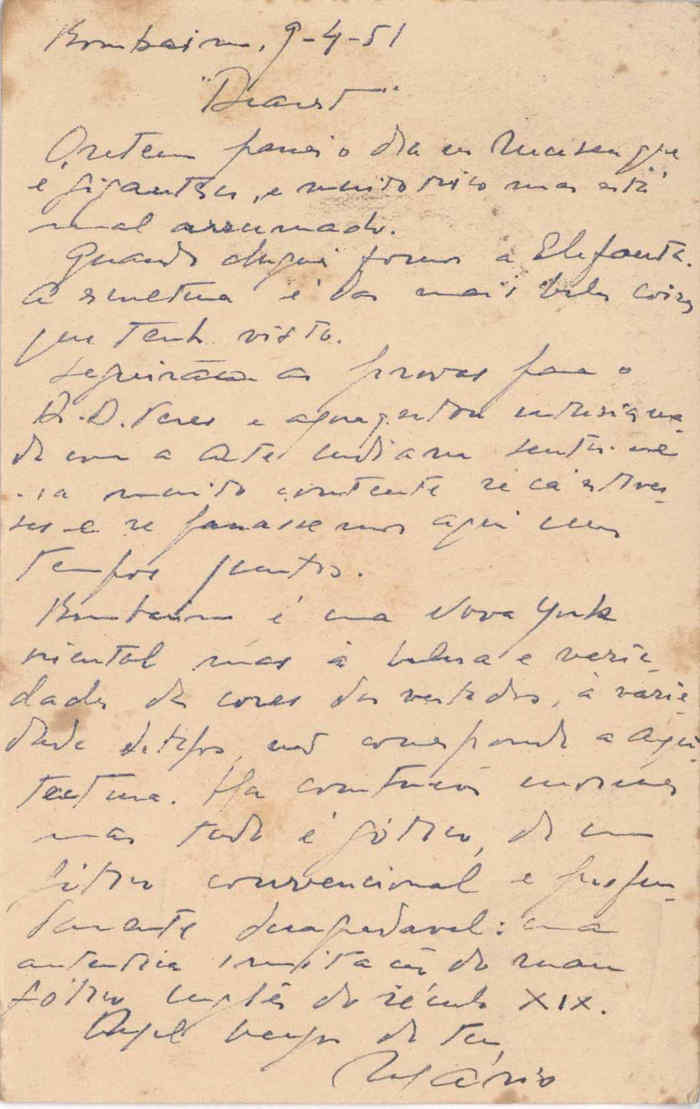 Bombaim, 9-4-51
Ontem passei o dia no Museu que
é gigantesco, e muito rico mas está
mal arrumado.
Quando cheguei fomos a Elefanta.
A escultura é das mais belas coisas
que tenho visto.
Seguirão as provas para o
e a
com a Arte indiana
muito contente se cá estives-
ses e se passassemos aqui uns
tempos juntos.
Bombaim é uma Nova York
oriental mas à beleza e varie-
dades de cores dos vestidos, à varie-
dade de tipos, não corresponde a arqui-
tectura. Ha construções enormes
mas tudo é gótico, de um
gótico convencional e profun-
damente desagradavel: uma
autentica imitação do mau
gótico inglês do século XIX.
do teu
Mário